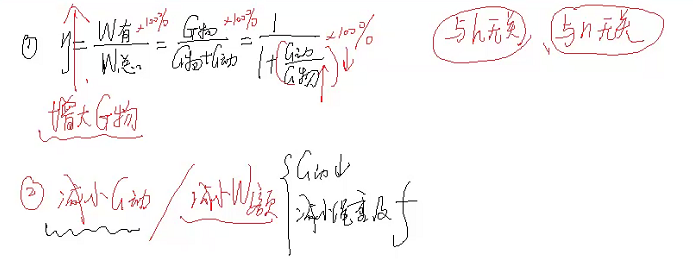 ① η = W有/W总 ×100% = G物/(G物+G动) ×100% = 1/(1+(G动/G物)) ×100% 与h无关, 与n无关
增大G物
② 减小G动 / 减小W额 { G动↓
减小绳重及f